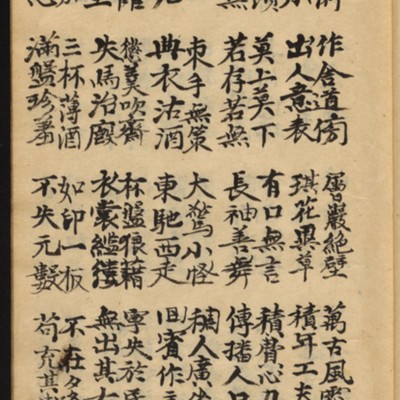 作舍道傍 層巖絶壁 萬古風
出人意表 琪花異草 積年工夫
莫上莫下 有口無言 積費心
無 若存若無 長袖善舞 傳播人口
束手無策 大驚小怪 稠人廣
典衣沽酒 東馳西走 賓作
懲羹吹齋 杯盤狼藉 於
失馬治廐 衣裳繿縷 無出其右
三杯薄酒 如印一板 不在多
滿盤珍羞 不失元數 苟充其